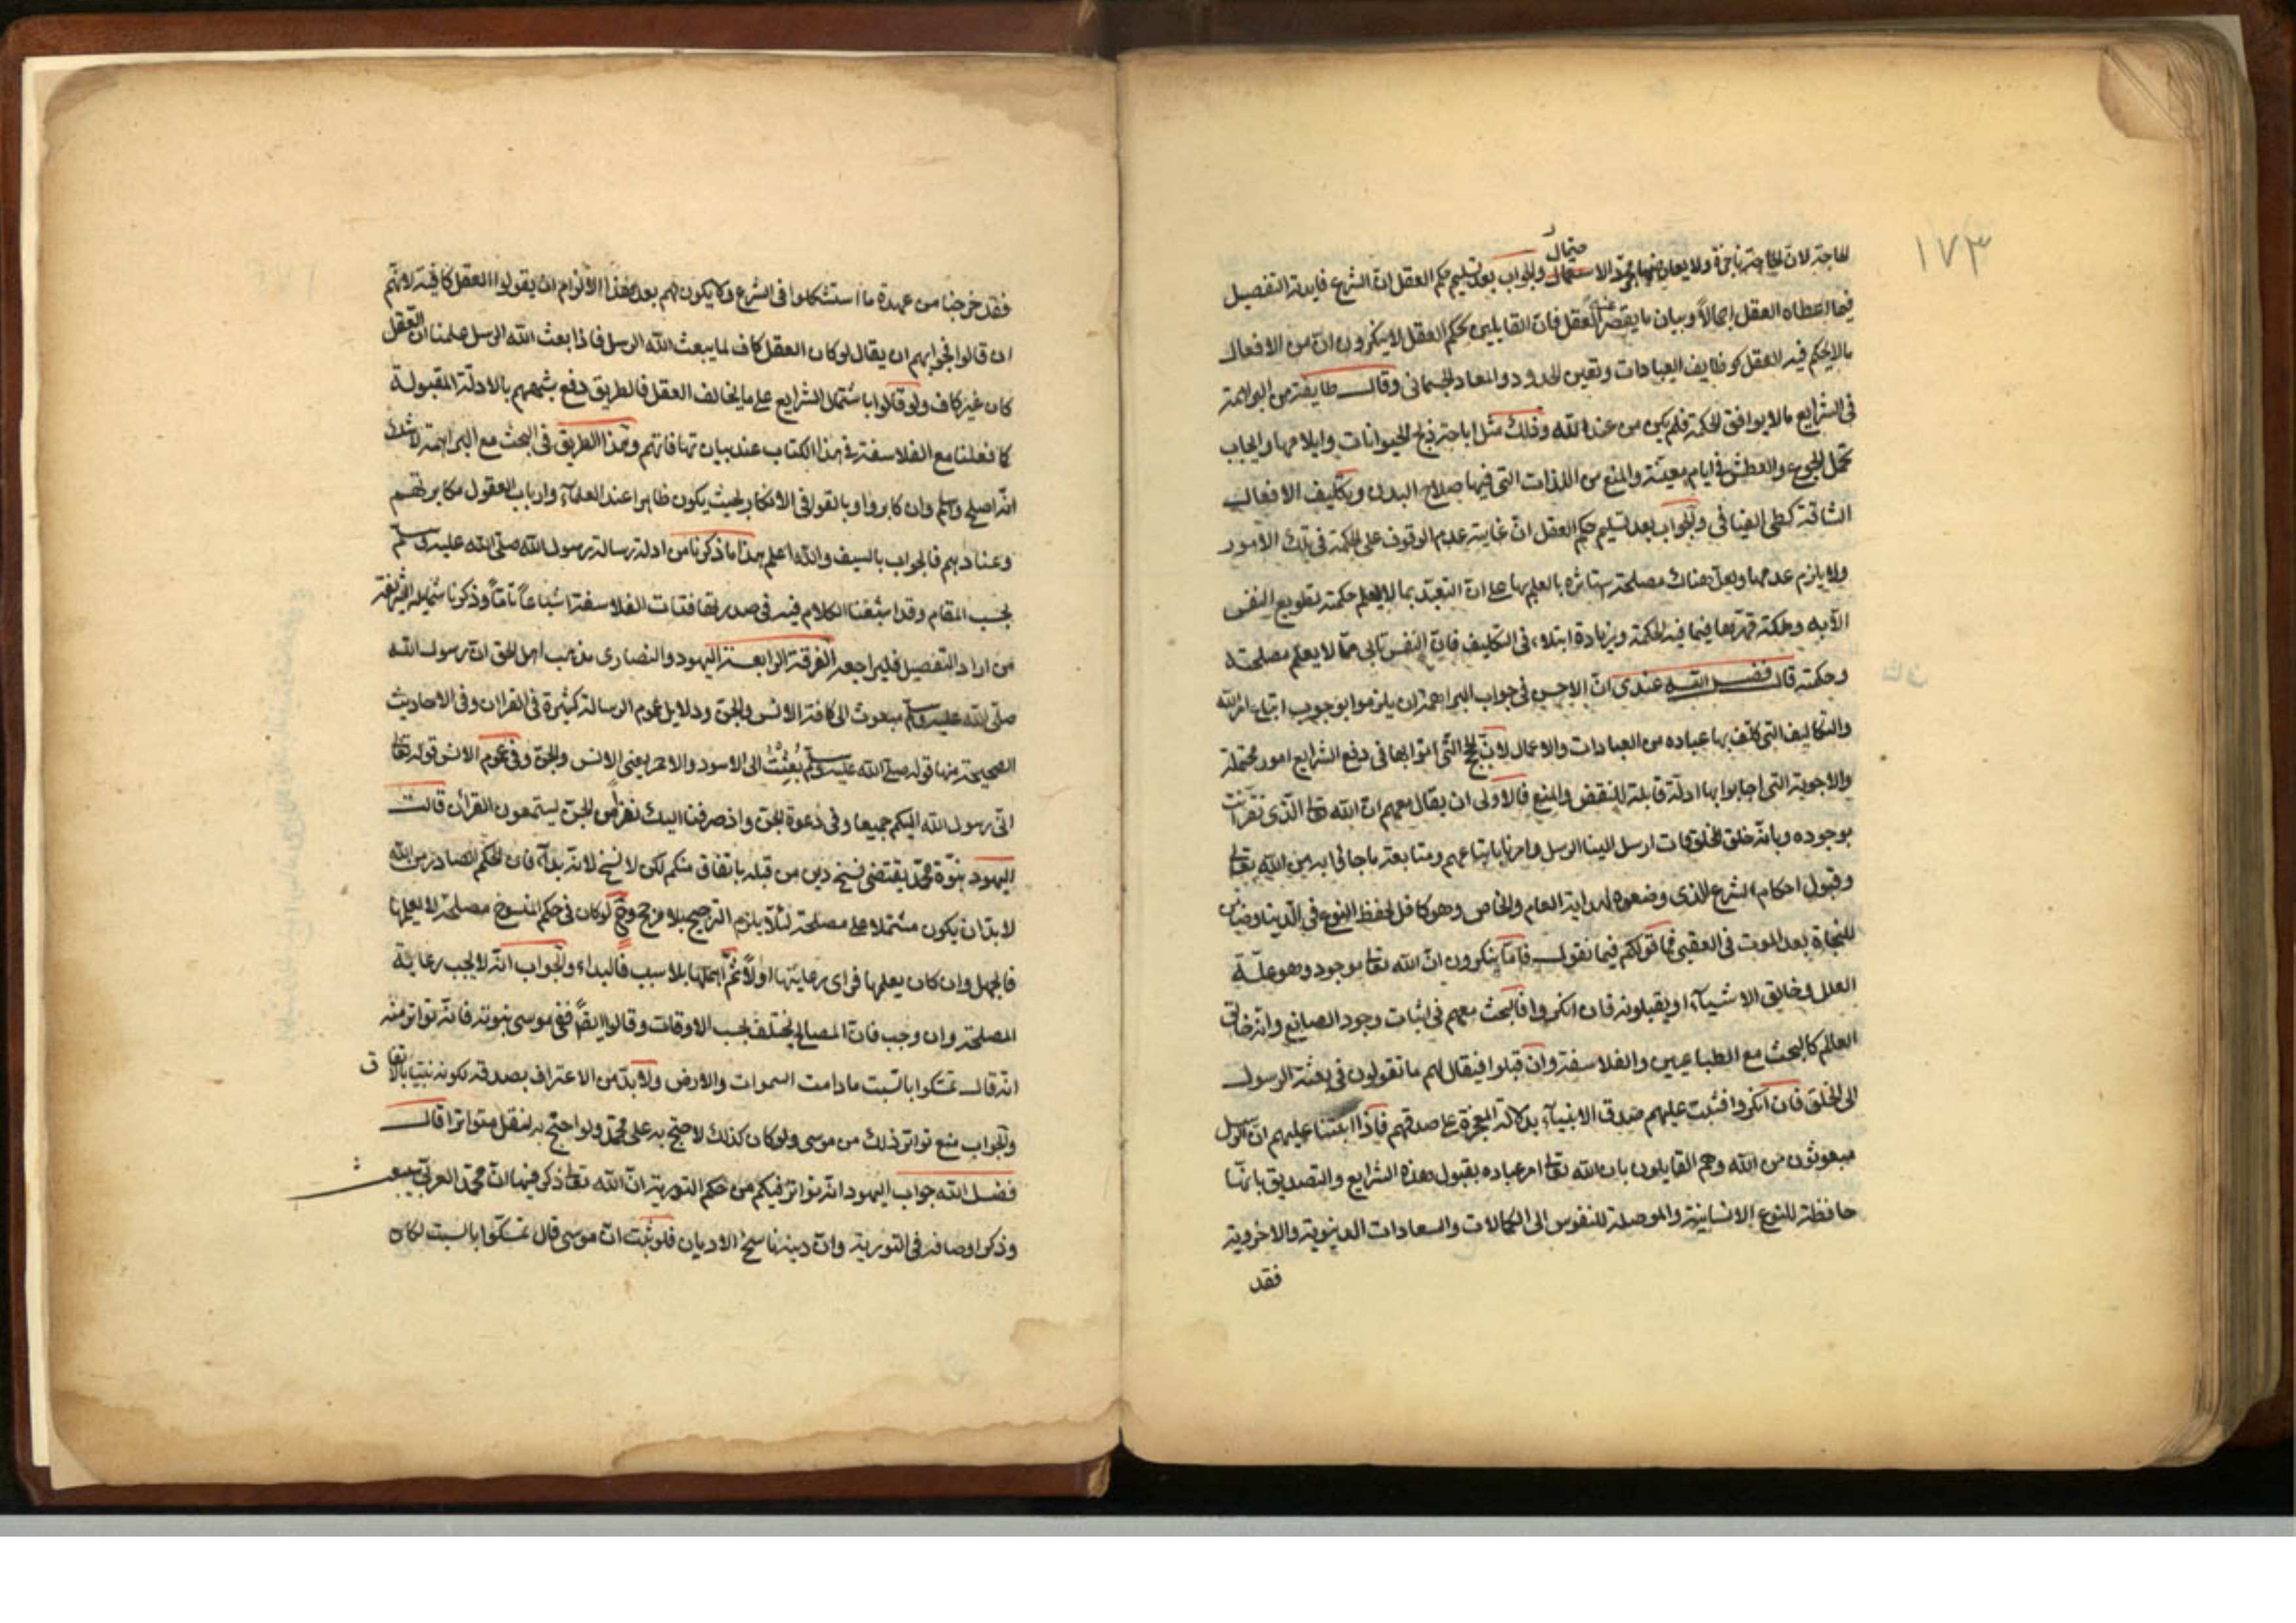 ١٧٣
للحاجة لان الحاجة ناجزة ولا يعارضها مجرد الاحتمال والجواب بعد تسليم حكم العقل ان الشرع فايدته التفصيل
فيما اعطاه العقل اجمالاً وبيان ما يقصر عنه العقل فان القايلين بحكم العقل لا ينكرون ان من الافعال
مالا يحكم فيه العقل كوظايف العبادات وتعيين الحدود والمعاد الجسماني وقالت طايفة من البراهمة
في الشرايع مالا يوافق الحكمة فلم يكن من عند الله وذلك مثل اباحة ذبح الحيوانات وايلامها وايجاب
تحمل الجوع والعطش في ايام معينة والمنع من اللذات التي فيها صلاح البدن وتكليف الافعال
الشاقة كطي الفيافي والجواب بعد تسليم حكم العقل ان غايته عدم الوقوف على الحكمة في تلك الامور
ولا يلزم عدمها ولعل هناك مصلحة يستاثره بالعلم بها على ان التعبد بما لا يعلم حكمته تطويع النفس
الأبيه وملكة قهرها فيما فيه الحكمة وزيادة ابتلاء في التكليف فان النفس تابى مما لا يعلم مصلحته
وحكمته قال فضل الله عندي ان الاحسن في جواب البراهمة ان يلزموا بوجوب اتباع امر الله
والتكاليف التي كلف بها عباده من العبادات والاعمال لان الحجج التي اتوا بها في دفع الشرايع امور محتملة
والاجوبة التي اجابوا بها ادلة قابلة للنقض والمنع فالاولى ان يقال معهم ان الله تعالى الذي نقر انت
بوجوده وبانه خلق المخلوقات ارسل الينا الرسل وامرنا باتباعهم ومتابعة ما جاؤا به من الله تعالى
وقبول احكام الشرع الذي وضعوه لهداية العام والخاص وهو كافل لحفظ النوع في الدنيا وضامن
للنجاة بعد الموت في العقبى فما قولكم فيما نقول فاما ينكرون ان الله تعالى موجود وهو علة
العلل وخالق الاشياء او يقبلونه فان انكروا فالبحث معهم في اثبات وجود الصانع وانه خالق
العالم كالبحث مع الطباعيين والفلاسفة وان قبلوا فيقال لهم ما تقولون في بعثة الرسول
الى الخلق فان انكروا فثبت عليهم صدق الانبياء بدلالة المعجزة على صدقهم فاذا اثبتنا عليهم ان الرسل
مبعوثون من الله وهم القايلون بان الله تعالى امر عباده بقبول هذه الشرايع والتصديق بانها
حافظة للنوع الانسانية والموصلة للنفوس الى الكمالات والسعادات الدنيوية والاخروية
فقد
فقد خرجنا من عهدة ما استشكلوا في الشرع ولا يكون لهم بعد هذا الالزام ان يقولوا العقل كافية لانهم
ان قالوا فجوابهم ان يقال لو كان العقل كاف لما يبعث الله الرسل فاذا بعث الله الرسل علمنا ان العقل
كان غير كاف ولو قالوا باشتمال الشرايع على ما يخالف العقل فالطريق دفع شبههم بالادلة المقبولة
كما فعلنا مع الفلاسفة في هذا الكتاب عند بيان تهافاتهم وهذا الطريق في البحث مع البراهمة لا شك
انه اصلح واسلم وان كابروا وبالغوا في الانكار بحيث يكون ظاهرا عند العلماء وارباب العقول مكابرتهم
وعنادهم فالجواب بالسيف والله اعلم هذا ما ذكرنا من ادلة رسالة رسول الله صلى الله عليه وسلم
بحسب المقام وقد اشبعنا الكلام فيه في صدر تهافتات الفلاسفة اشباعاً تاماً وذكرنا شمايله الشريفة
من اراد التفصيل فليراجعه الفرقة الرابعة اليهود والنصارى مذهب اهل الحق ان رسول الله
صلى الله عليه وسلم مبعوث الى كافة الانس والجن ودلايل عموم الرسالة كثيرة في القران وفي الاحاديث
الصحيحة منها قوله صلى الله عليه وسلم بُعِثْتُ الى الاسود والاحمر يعني الانس والجن وفي عموم الانس قوله تعالى
اني رسول الله اليكم جميعا وفي دعوة الجن واذ صرفنا اليك نفرا من الجن يستمعون القرآن قالت
اليهود نبوة محمد يقتضي نسخ دين من قبله باتفاق منكم لكن لا نسخ لانه بدآء فان الحكم الصادر من الله
لابد ان يكون مشتملا على مصلحة لئلا يلزم الترجيح بلا مرجح وح لو كان في حكم المنسوخ مصلحة لا يعلمها
فالجهل وان كان يعلمها فراى رعايتها اولاً ثم اهملها بلا سبب فالبداء والجواب انه لا يجب رعاية
المصلحة وان وجب فان المصالح يختلف بحسب الاوقات وقالوا ايضاً نفى موسى نبوته فانه تواتر منه
انه قال تمسكوا بالسبت ما دامت السموات والارض ولا بد من الاعتراف بصدقه لكونه نبيا بالاتفاق
والجواب منع تواتر ذلك من موسى ولو كان كذلك لاحتج به على محمد ولو احتج به لنقل متواترا قال
فضل الله جواب اليهود انه تواتر فيكم من حكم التورية ان الله تعالى ذكر فيها ان محمد العربي سيبعث
وذكر اوصافه في التورية وان دينه ناسخ الاديان فلو ثبت ان موسى قال تمسكوا بالسبت لكان